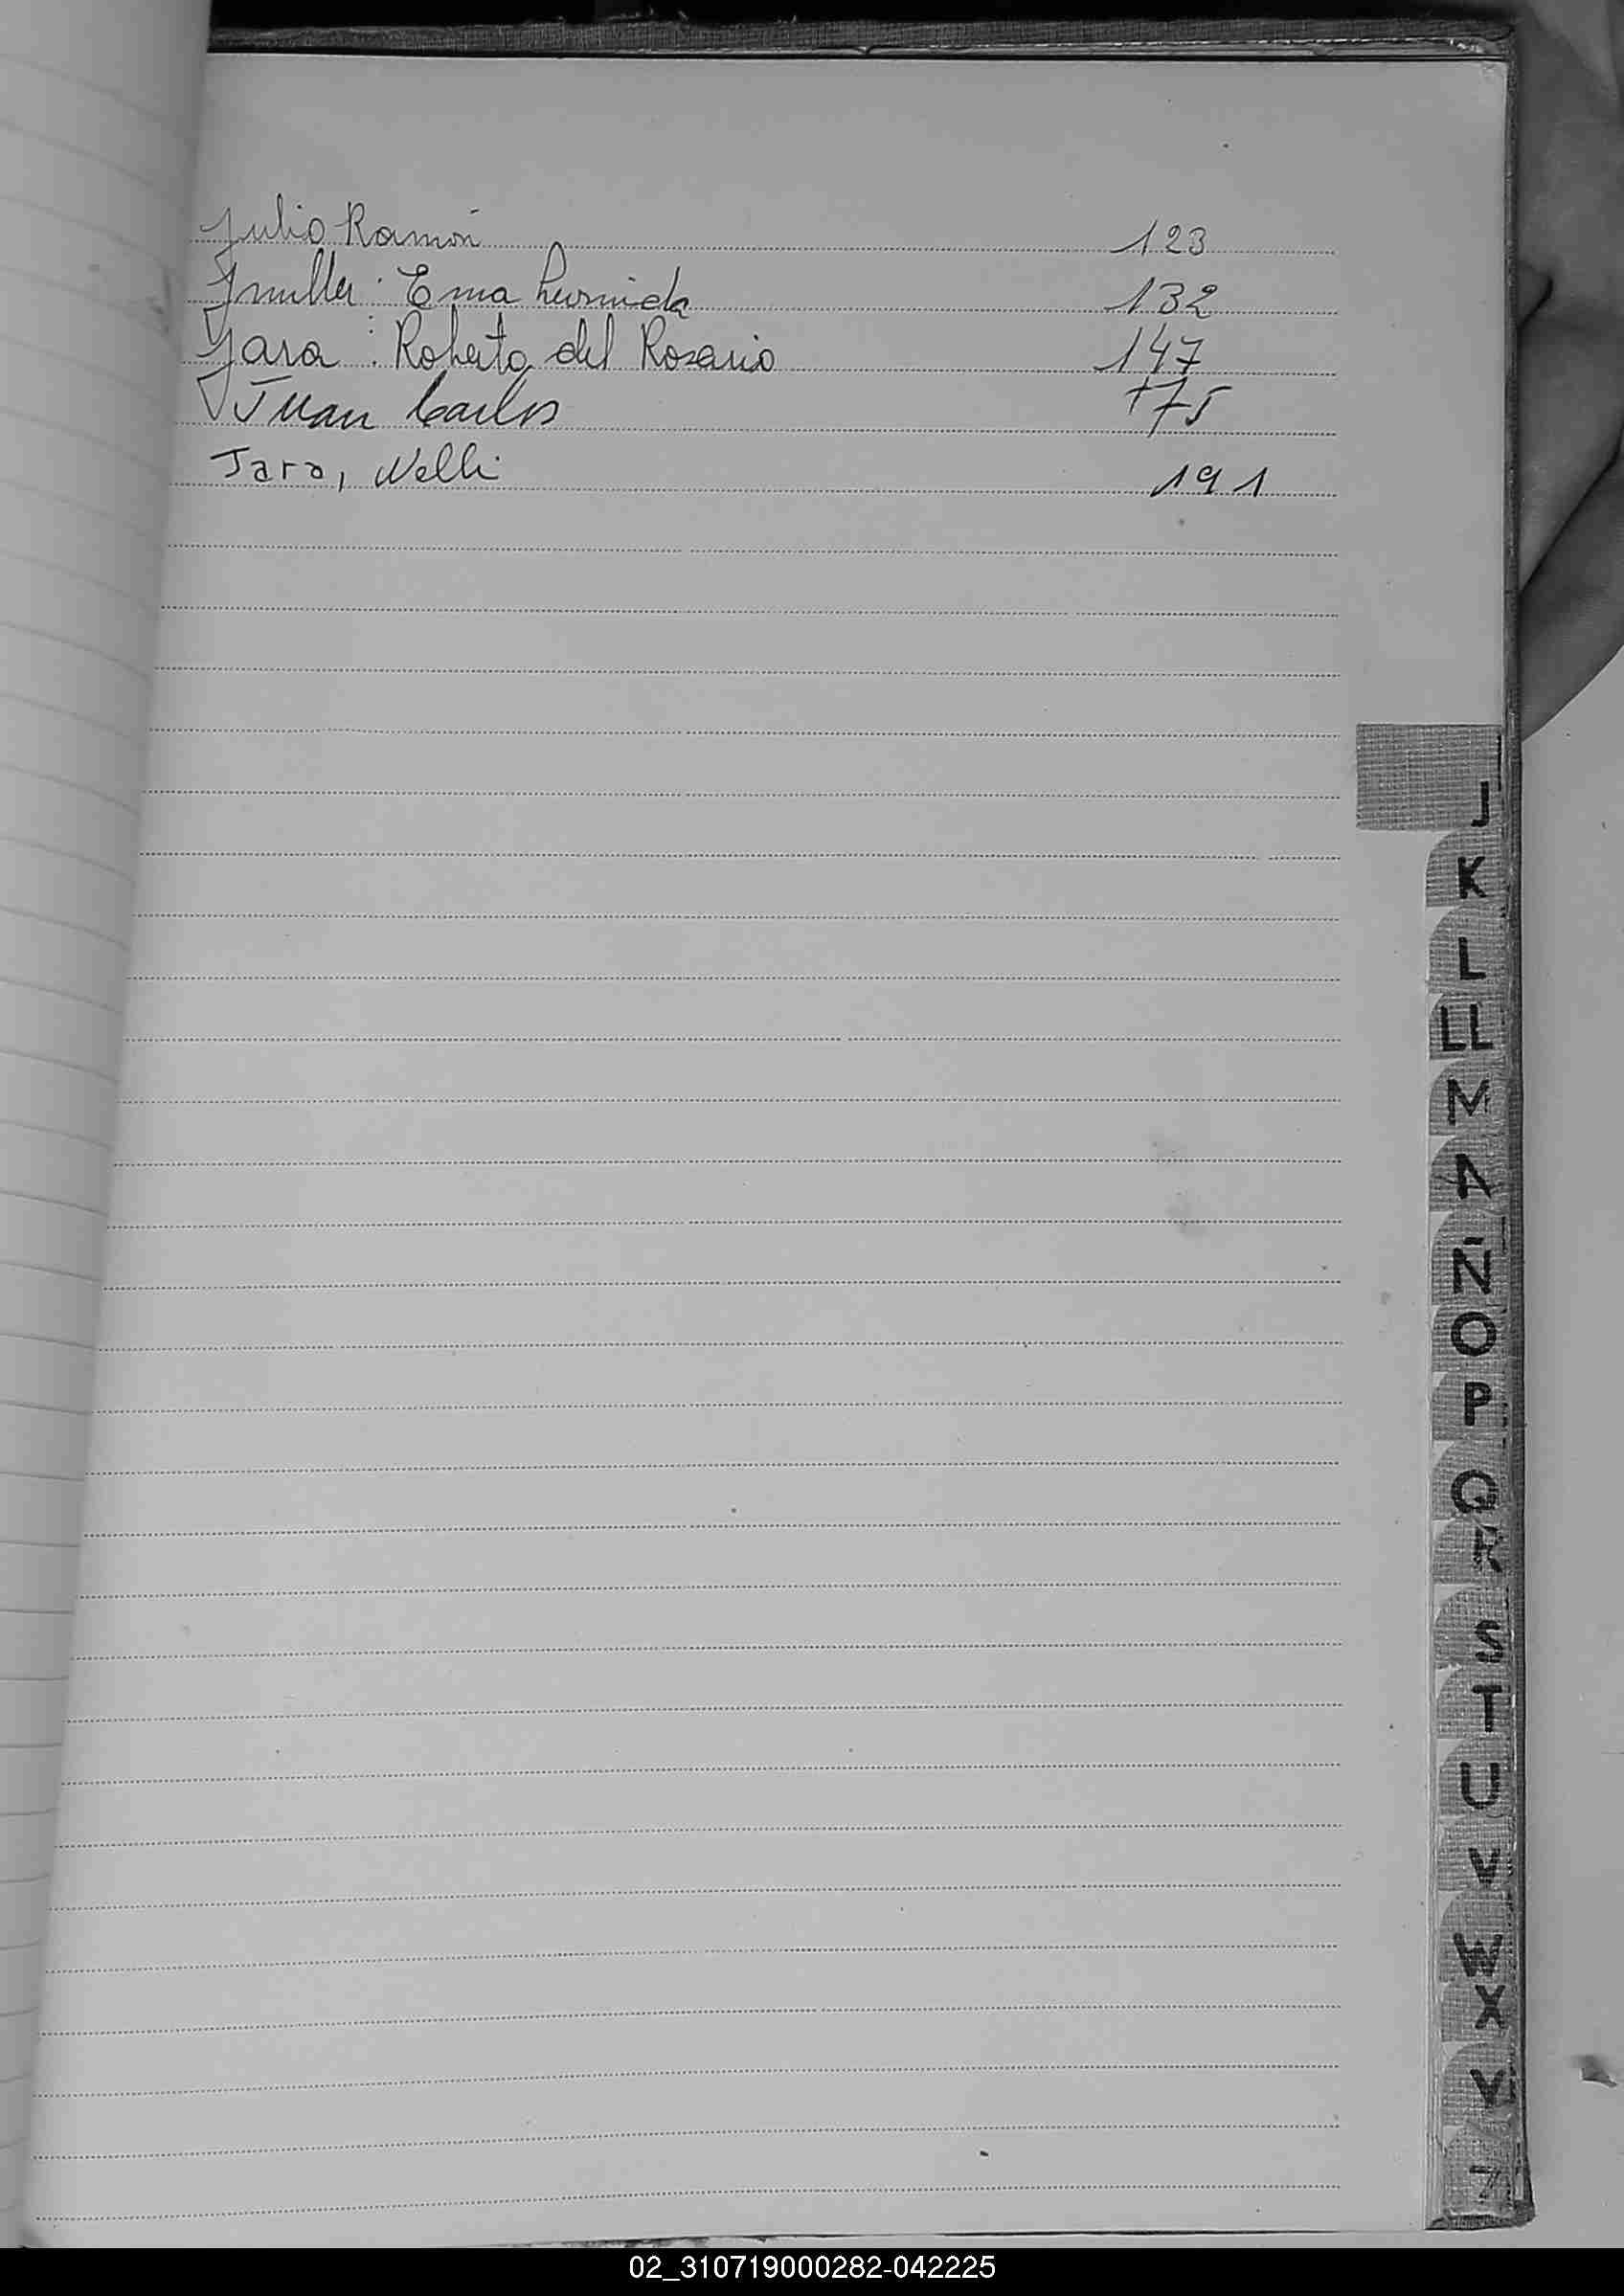 Julio Ramón 123
Jmuller: Ema 132
Jara: Roberto del Rosario 147
Juan Carlos 175
Jara, Nelli 191
J
K
L
LL
M
N
Ñ
O
P
Q
R
S
T
U
V
W
X
Y
Z
02_310719000282-042225